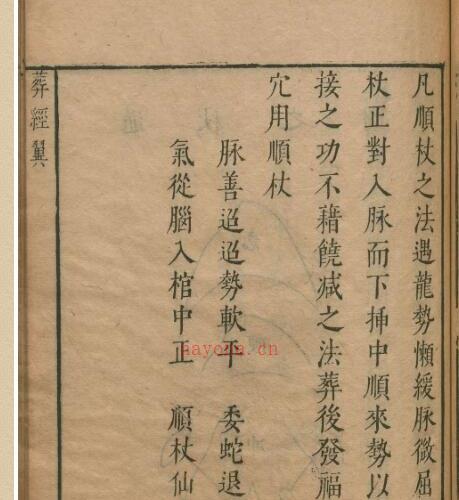 凡順杖之法遇龍勢懶緩脉微屈
杖正對入脉而下揷中順來勢以
接之功不藉饒减之法葬後發福
穴用順杖
脉善迢迢勢軟平 委蛇退
氣從腦入棺中正 順杖仙
葬經翼
hayona.cn